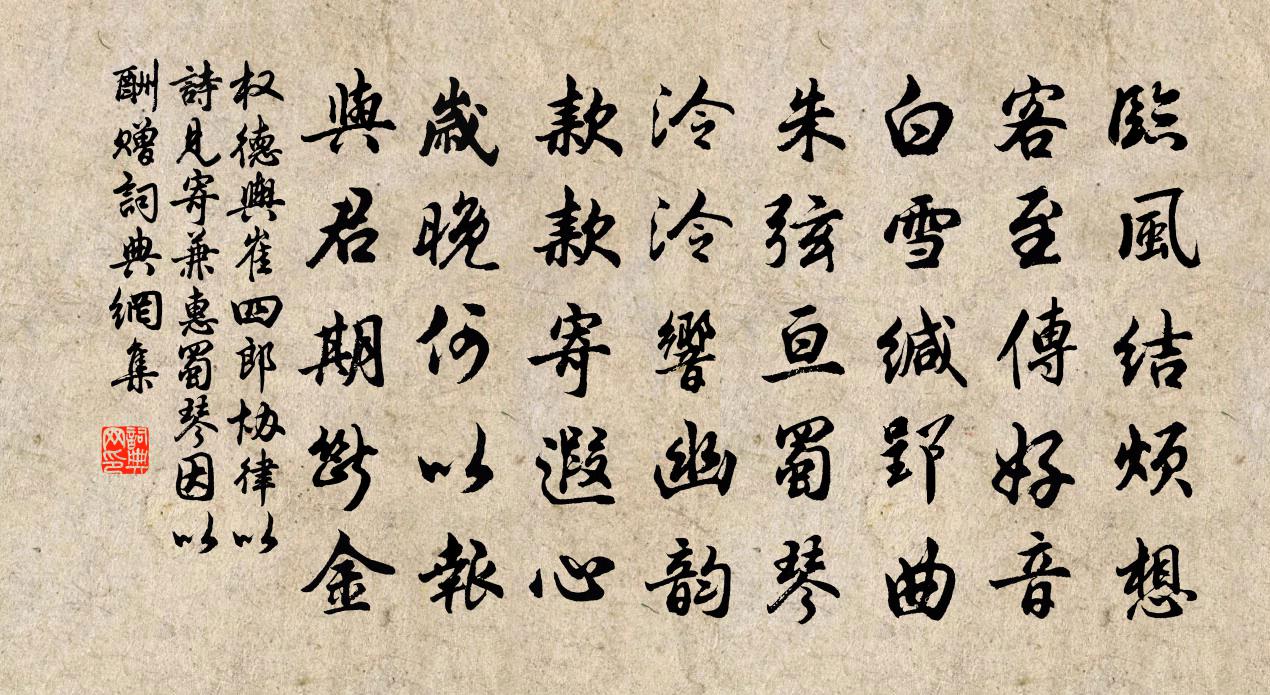 臨風結煩想
客至傳好音
白雪緘郢曲
朱弦亘蜀琴
泠泠響幽韵
款款寄遐心
歲晚何以報
與君期斷金
权德輿崔四郎协律以
詩見寄兼惠蜀琴因以
酬贈詞典網集
詞典网印